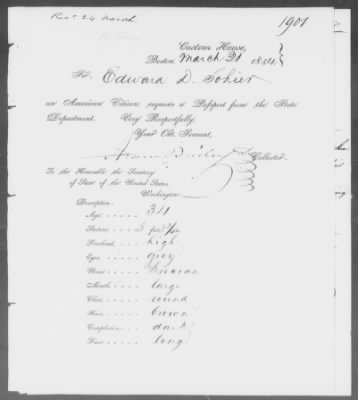 Rec'd 24 March
1901
Custom House,
Boston, March 21 185
Sir, Edward D. Sohier
an American Citizen, requests a Passport from the State
Department. Very Respectfully,
Your Obt. Servant,
Collector.
To the Honorable the Secretary
of State of the United States,
Washington
Description:
Age . . . . .
Stature . . . . 5 feet
Forehead . . . . high
Eyes . . . . grey
Nose . . . . Grecian
Mouth . . . . large
Chin . . . . round
Hair . . . . brown
Complexion . . . . dark
Face . . . . long